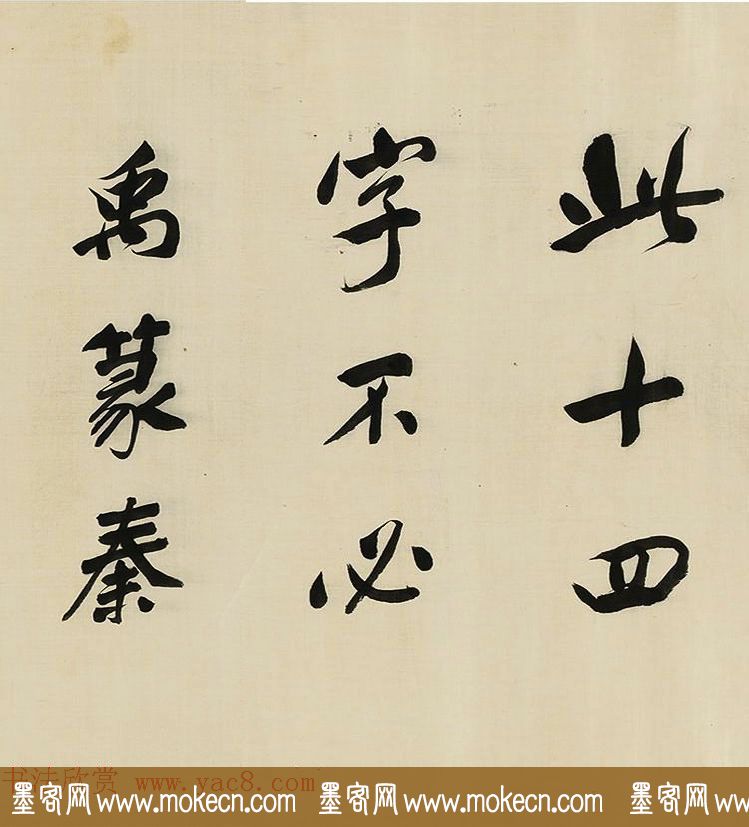 此十四
字不必
禹篆秦
书法欣赏 www.yac8.com
墨客网 www.mokecn.com 墨客网 www.mokecn.com 墨客网 www